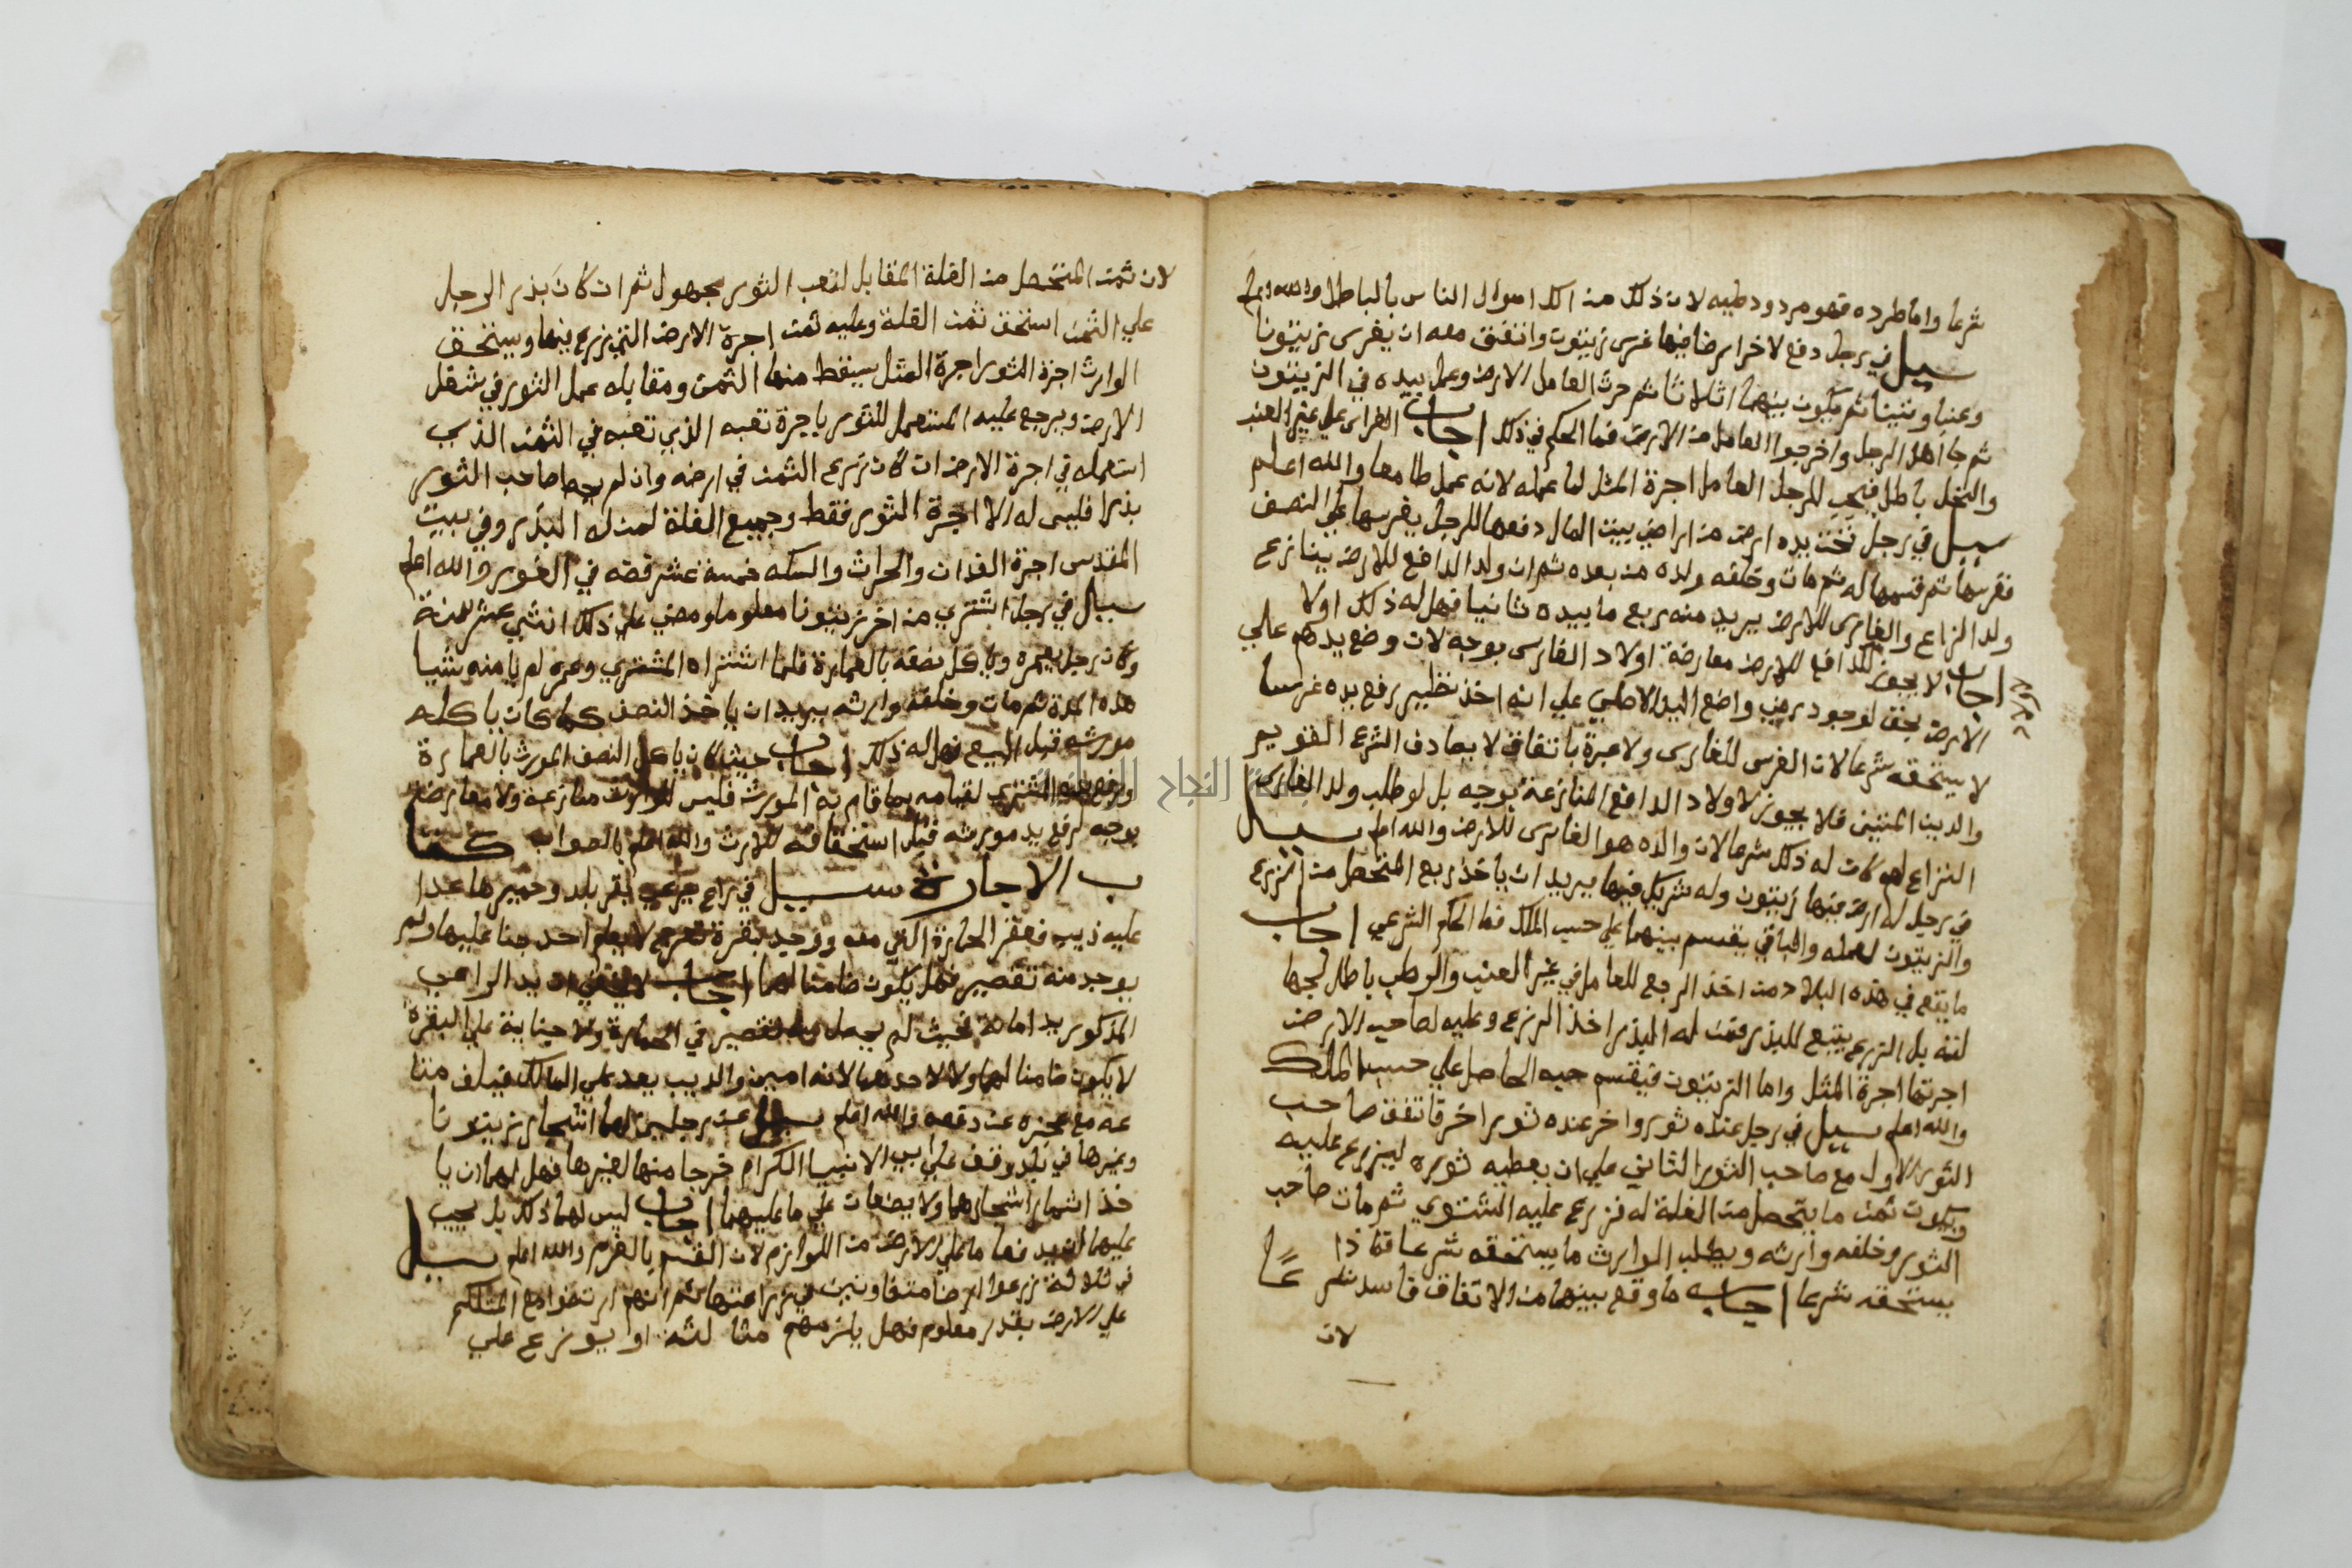 شرعا واما طرده فهو مردود عليه لان ذلك من اكل اموال الناس بالباطل والله اعلم
سيل في رجل دفع لاخر ارضا فيها غرس زيتون واتفق معه ان يغرس زيتونا
وعنبا وتينا ثم يكون بينهما اثلاثا ثم حرث العامل الارض وعمل بيده في الزيتون
ثم جا اهل الرجل واخرجوا العامل من الارض فما الحكم في ذلك اجاب الغراس علي غير العنب
والنخل باطل فيجب للرجل العامل اجرة المثل لما عمله لانه عمل طامعا والله اعلم
سيل في رجل تحت يده ارض من اراضي بيت المال دفعها لرجل يغرسها علي النصف
فغرسها ثم قسمها له ثم مات وخلفه ولده من بعده ثم ان ولد الدافع للارض ينازع
ولد الزاع والغارس للارض يريد منه ربع ما بيده ثانيا فهل له ذلك اولا
اجاب لا يجوز للدافع للارض معارضة اولاد الغارس بوجه لان وضع يدهم علي
الارض بحق لوجود رضي واضع اليد الاصلي علي انه اخذ نظير رفع يده غرسا
لا يستحقه شرعا لان الغرس للغارس ولا عبرة باتفاق لا يصادف الشرع القويم
والدين المتين فلا يجوز لاولاد الدافع المنازعة بوجه بل لو طلب ولد الغارس
النزاع لهم كان له ذلك شرعا لان والده هو الغارس للارض والله اعلم سيل
في رجل له ارض فيها زيتون وله شريك فيها يريد ان ياخذ ربع المتحصل من الزرع
والزيتون لعمله والباقي يقسم بينهما علي حسب الملك فما الحكم الشرعي اجاب
ما يقع في هذه البلاد من اخذ الربع للعامل في غير العنب والرطب باطل لجها
لته بل الزرع يتبع للبذر فمن له البذر اخذ الزرع وعليه لصاحب الارض
اجرتها اجرة المثل واما الزيتون فيقسم حبه الحاصل علي حسب الملك
والله اعلم سيل في رجل عنده ثور واخر عنده ثور اخر فاتفق صاحب
الثور الاول مع صاحب الثور الثاني علي ان يعطيه ثوره ليزرع عليه
ويكون ثمن ما يتحصل من الغلة له فزرع عليه الشتوي ثم مات صاحب
الثور وخلفه وارثه ويطلب الوارث ما يستحقه شرعا فماذا
يستحقه شرعا اجاب ما وقع بينهما من الاتفاق فاسد شرعا
لان
لان ثمن المتحصل من الغلة المقابل لتعب الثور مجهول ثم ان كان بذر الرجل
علي الثمن استحق ثمن الغلة وعليه ثمن اجرة الارض التي زرع فيها ويستحق
الوارث اجرة الثور اجرة المثل يسقط منها الثمن ومقابله عمل الثور في شغل
الارض ويرجع عليه المستعمل للثور باجرة تعبه الذي تعبه في الثمن الذي
استعمله في اجرة الارض ان كان زرع الثمن في ارضه وان لم يعط صاحب الثور
بذرا فليس له الا اجرة الثور فقط وجميع الغلة لمن له البذر وفي بيت
المقدس اجرة الفدان والحراث والسكه خمسة عشر قطه في الغور والله اعلم
سيل في رجل اشتري من اخر زيتونا معلوما ومضي علي ذلك اثني عشر سنة
وكان رجل يعمره وياكل نصفه بالعمارة فلما اشتراه المشتري وعمره لم يا منه شيا
هذه المدة ثم مات وخلفه وارثه يريد ان ياخذ النصف كما كان ياكله
مورثه قبل البيع فهل له ذلك اجاب حيث كان ياكل النصف المورث بالعمارة
ورفع يده المشتري لقيامه بما قام به المورث فليس للوارث منازعة ولا معارضة
بوجه لرفع يد مورثه قبل استحقاقه للارث والله اعلم بالصواب كتا
ب الاجارة سيل في راع يرعي بقر بلد وحميرها عدا
عليه ذيب فعقر الحمارة التي معه ووجد بقرة تعرج لا يعلم احد جنا عليها ولم
يوجد منه تقصير فهل يكون ضامنا لهما اجاب يد الراعي
المذكور يد امانة فحيث لم يحصل منه تقصير في الحمارة ولا جناية علي البقرة
لا يكون ضامنا لهما ولا لاحدهما لانه امين والذيب يعد علي المالك فيلف منا
عه مع عجزه عن دفعه والله اعلم سيل عن رجلين لهما اشجار زيتونا
وغيرها في بلد وقف علي ابي الانبيا الكرام خرجا منها لغيرها فهل لهما ان يا
خذ اثمار اشجارهما ولا يدفعان علي ما عليهما اجاب ليس لهما ذلك بل يجب
عليهما ان يدفعا ما علي الارض من اللوازم لان الغنم بالغرم والله اعلم سيل
في ثلاثة زرعوا ارضا متفاوتين في زراعتها ثم انهم ارتضوا مع المتكلم
علي الارض بقدر معلوم فهل يلزمهم مثالثه او يوزع علي